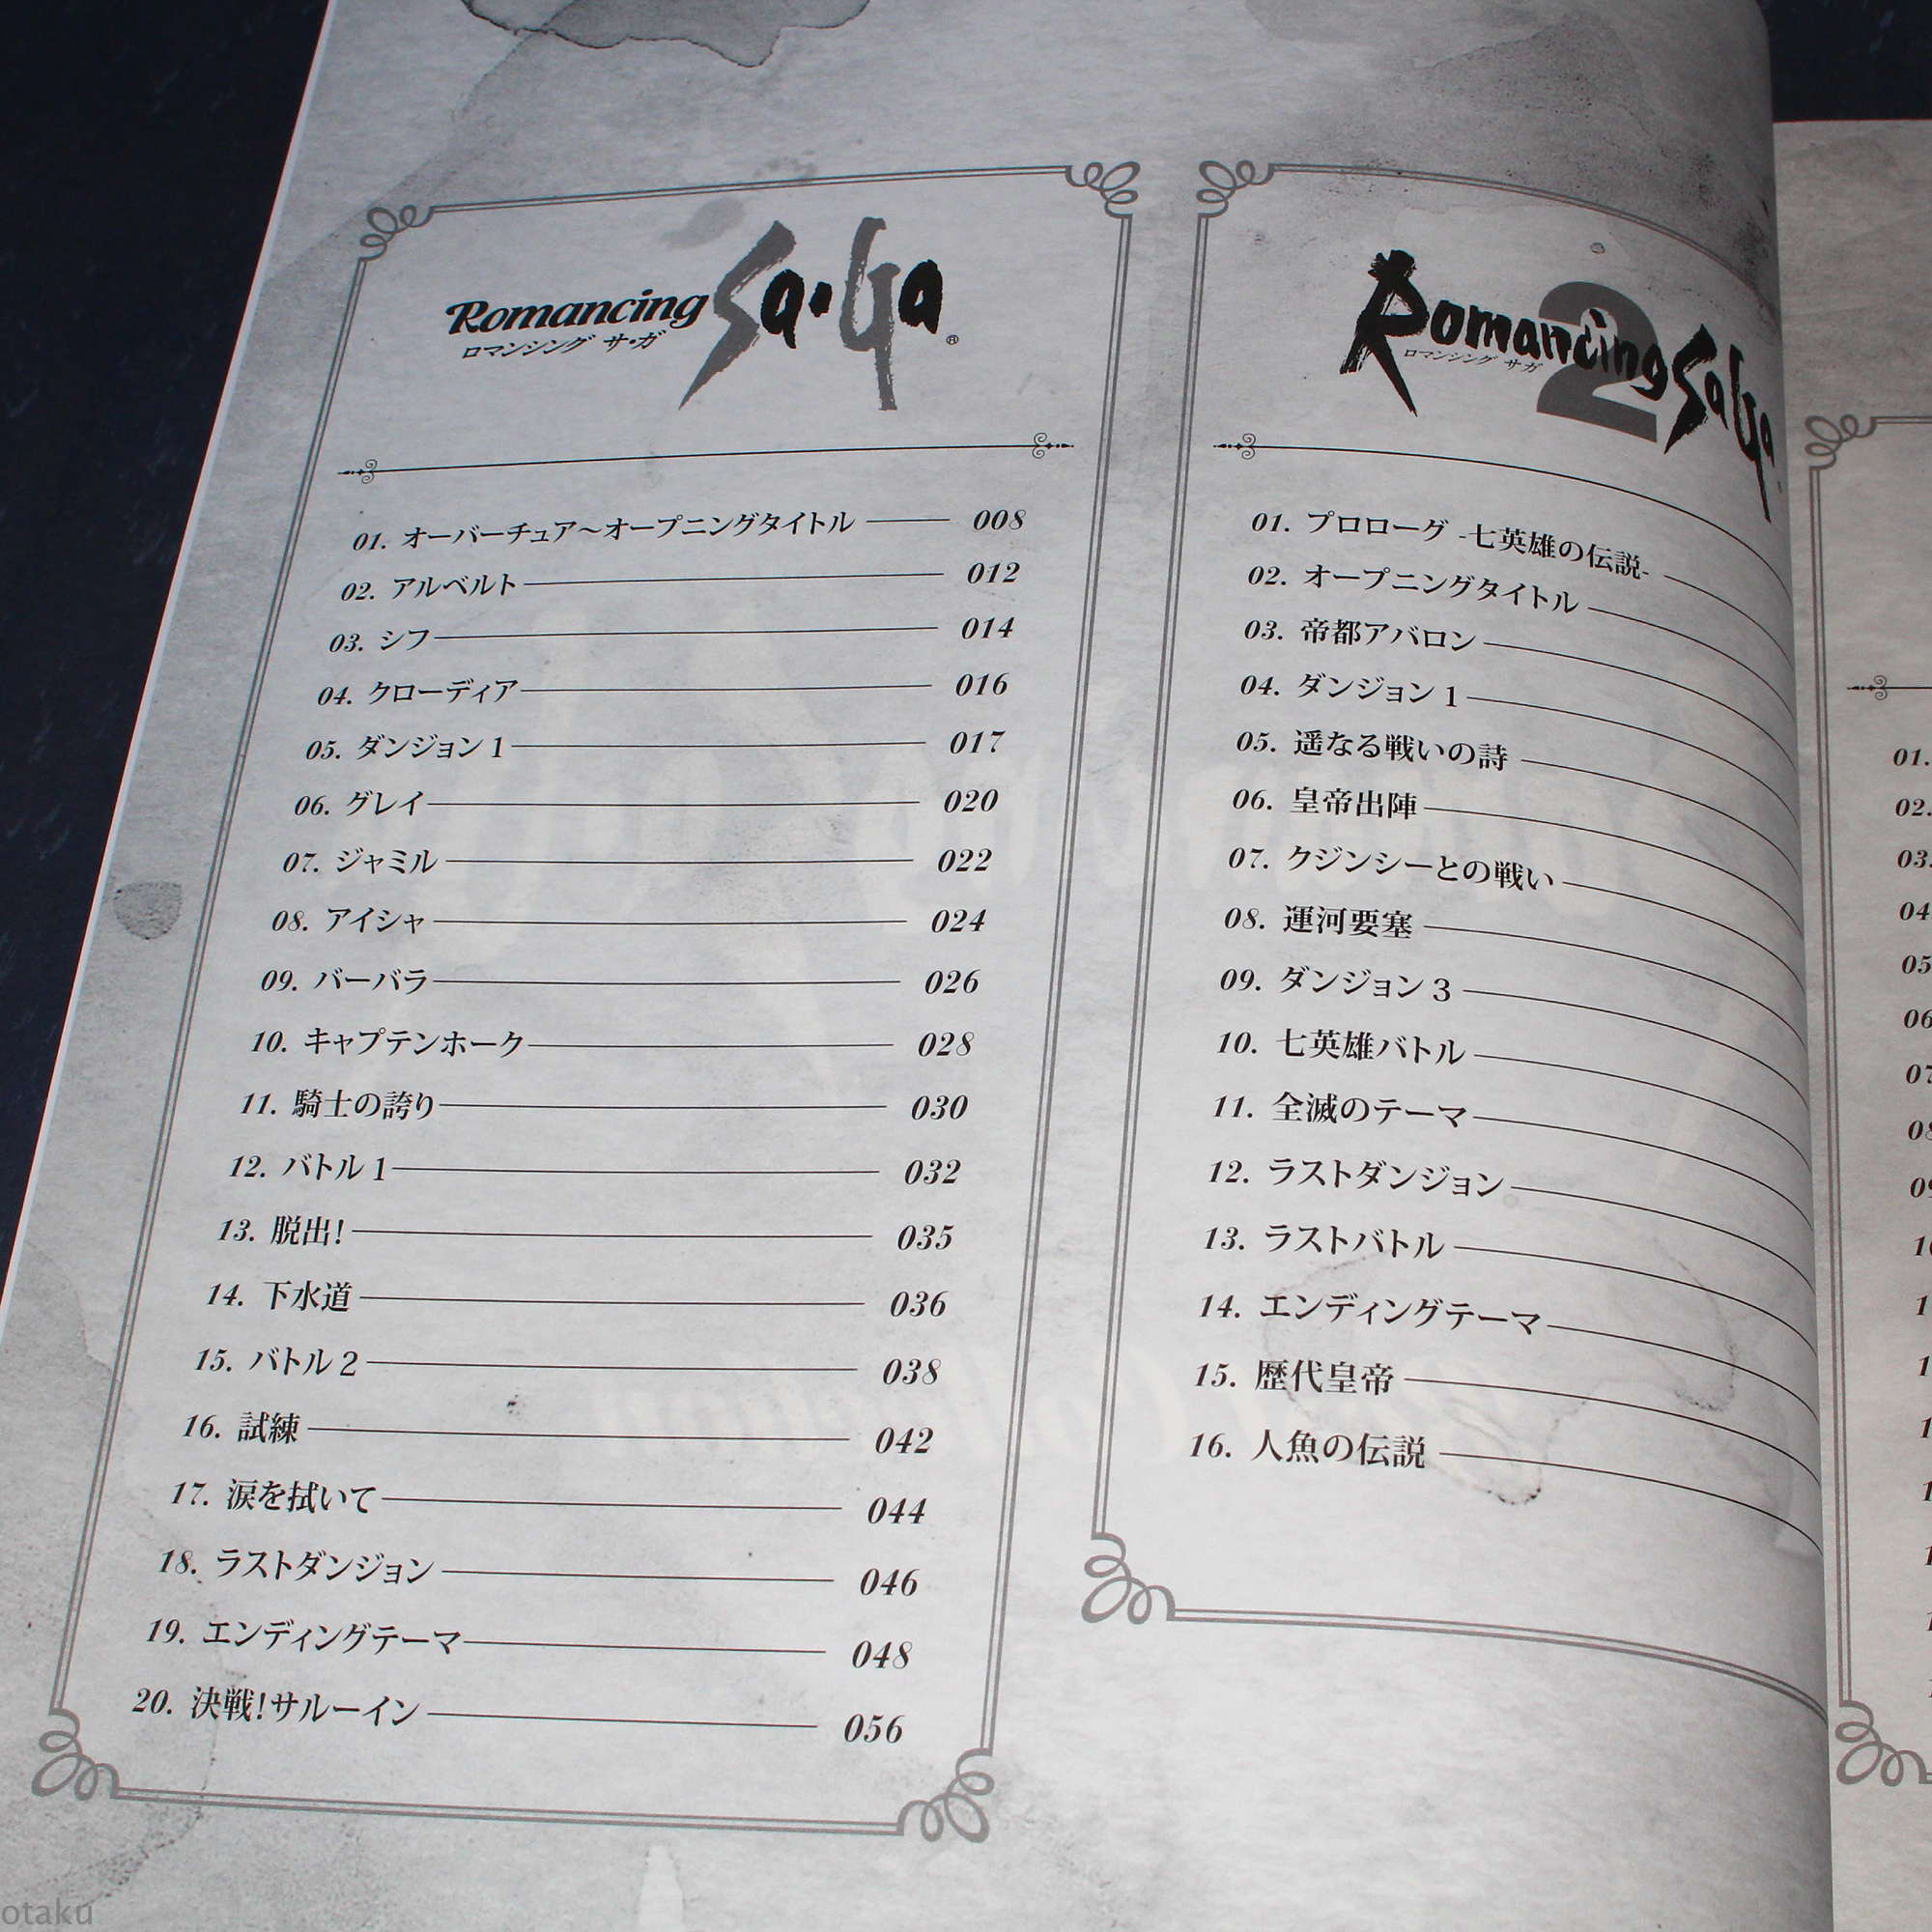 Romancing Sa・Ga®
ロマンシング サ・ガ
01. オーバーチュア～オープニングタイトル 008
02. アルベルト 012
03. シフ 014
04. クローディア 016
05. ダンジョン1 017
06. グレイ 020
07. ジャミル 022
08. アイシャ 024
09. バーバラ 026
10. キャプテンホーク 028
11. 騎士の誇り 030
12. バトル1 032
13. 脱出! 035
14. 下水道 036
15. バトル2 038
16. 試練 042
17. 涙を拭いて 044
18. ラストダンジョン 046
19. エンディングテーマ 048
20. 決戦!サルーイン 056
Romancing SaGa 2
ロマンシング サガ
01. プロローグ -七英雄の伝説-
02. オープニングタイトル
03. 帝都アバロン
04. ダンジョン1
05. 遥なる戦いの詩
06. 皇帝出陣
07. クジンシーとの戦い
08. 運河要塞
09. ダンジョン3
10. 七英雄バトル
11. 全滅のテーマ
12. ラストダンジョン
13. ラストバトル
14. エンディングテーマ
15. 歴代皇帝
16. 人魚の伝説
01.
02.
03.
04
05
06
07
08
09
otaku